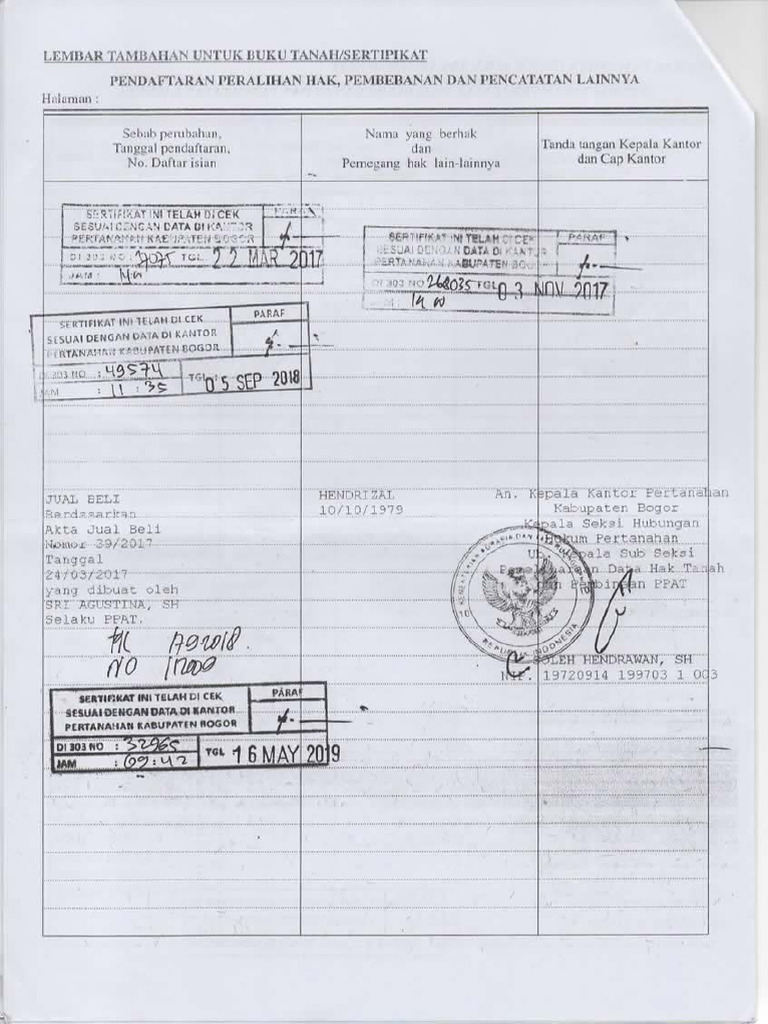 LEMBAR TAMBAHAN UNTUK BUKU TANAH/SERTIPIKAT
PENDAFTARAN PERALIHAN HAK, PEMBEBANAN DAN PENCATATAN LAINNYA
Halaman :
Sebab perubahan,
Tanggal pendaftaran,
No. Daftar isian
Nama yang berhak
dan
Pemegang hak lain-lainnya
Tanda tangan Kepala Kantor
dan Cap Kantor
SERTIFIKAT INI TELAH DI CEK
SESUAI DENGAN DATA DI KANTOR
PERTANAHAN KABUPATEN BOGOR
PARAF
DI 303 NO : TGL. 22 MAR 2017
JAM :
SERTIFIKAT INI TELAH DI CEK
SESUAI DENGAN DATA DI KANTOR
PERTANAHAN KABUPATEN BOGOR
PARAF
DI 303 NO 268035 TGL 03 NOV 2017
SERTIFIKAT INI TELAH DI CEK
SESUAI DENGAN DATA DI KANTOR
PERTANAHAN KABUPATEN BOGOR
PARAF
DI 303 NO : 49574
JAM : 11 : 35
TGL 05 SEP 2018
JUAL BELI
Berdasarkan
Akta Jual Beli
Nomor 39/2017
Tanggal
24/03/2017
yang dibuat oleh
SRI AGUSTINA, SH
Selaku PPAT.
NO
HENDRIZAL
10/10/1979
An. Kepala Kantor Pertanahan
Kabupaten Bogor
Kepala Seksi Hubungan
Hukum Pertanahan
Ub. Kepala Sub Seksi
Pemeliharaan Data Hak Tanah
dan Pembinaan PPAT
REPUBLIK INDONESIA
SOLEH HENDRAWAN, SH
NIP. 19720914 199703 1 003
SERTIFIKAT INI TELAH DI CEK
SESUAI DENGAN DATA DI KANTOR
PERTANAHAN KABUPATEN BOGOR
PARAF
DI 303 NO : 32965
JAM : 09:42
TGL 16 MAY 2019